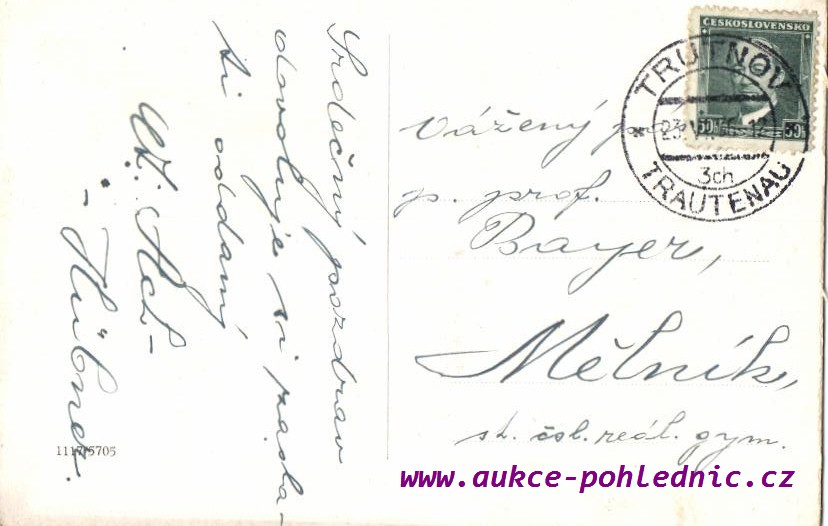 Srdečný pozdrav
dovoluje si zasla-
ti oddaný
Hübner.
1117/5705
ČESKOSLOVENSKO
50
50
TRUTNOV
3ch
TRAUTENAU
Vážený
p. prof.
Bayer,
Mělník,
st. čsl. reál. gym.
www.aukce-pohlednic.cz